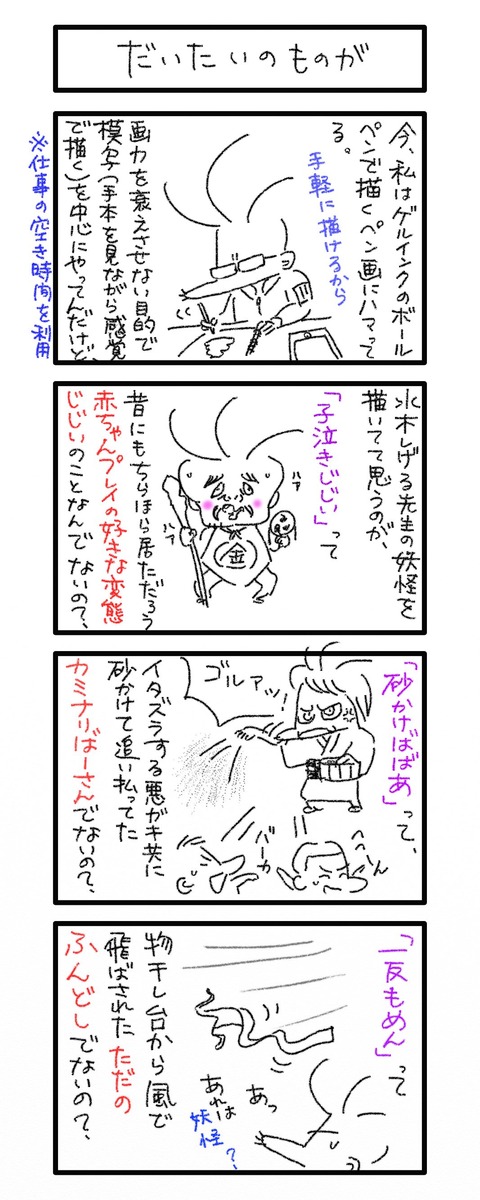 だいたいのものが
今、私はゲルインクのボール
ペンで描くペン画にハマって
る。
手軽に描けるから
画力を衰えさせない目的で
模写(手本を見ながら感覚
で描く)を中心にやってんだけど
※仕事の空き時間を利用
水木しげる先生の妖怪を
描いてて思うのが、
「子泣きじじい」って
ハァ
ハァ
金
昔にもちらほら居ただろう
赤ちゃんプレイの好きな変態
じじいのことなんでないの?、
「砂かけばばあ」って、
ゴルァッ!
バーカ
へへーん
イタズラする悪ガキ共に
砂かけて追い払ってた
カミナリばーさんでないの?、
「一反もめん」って
あっ
あれは
妖怪?、
物干し台から風で
飛ばされた ただの
ふんどしでないの?、